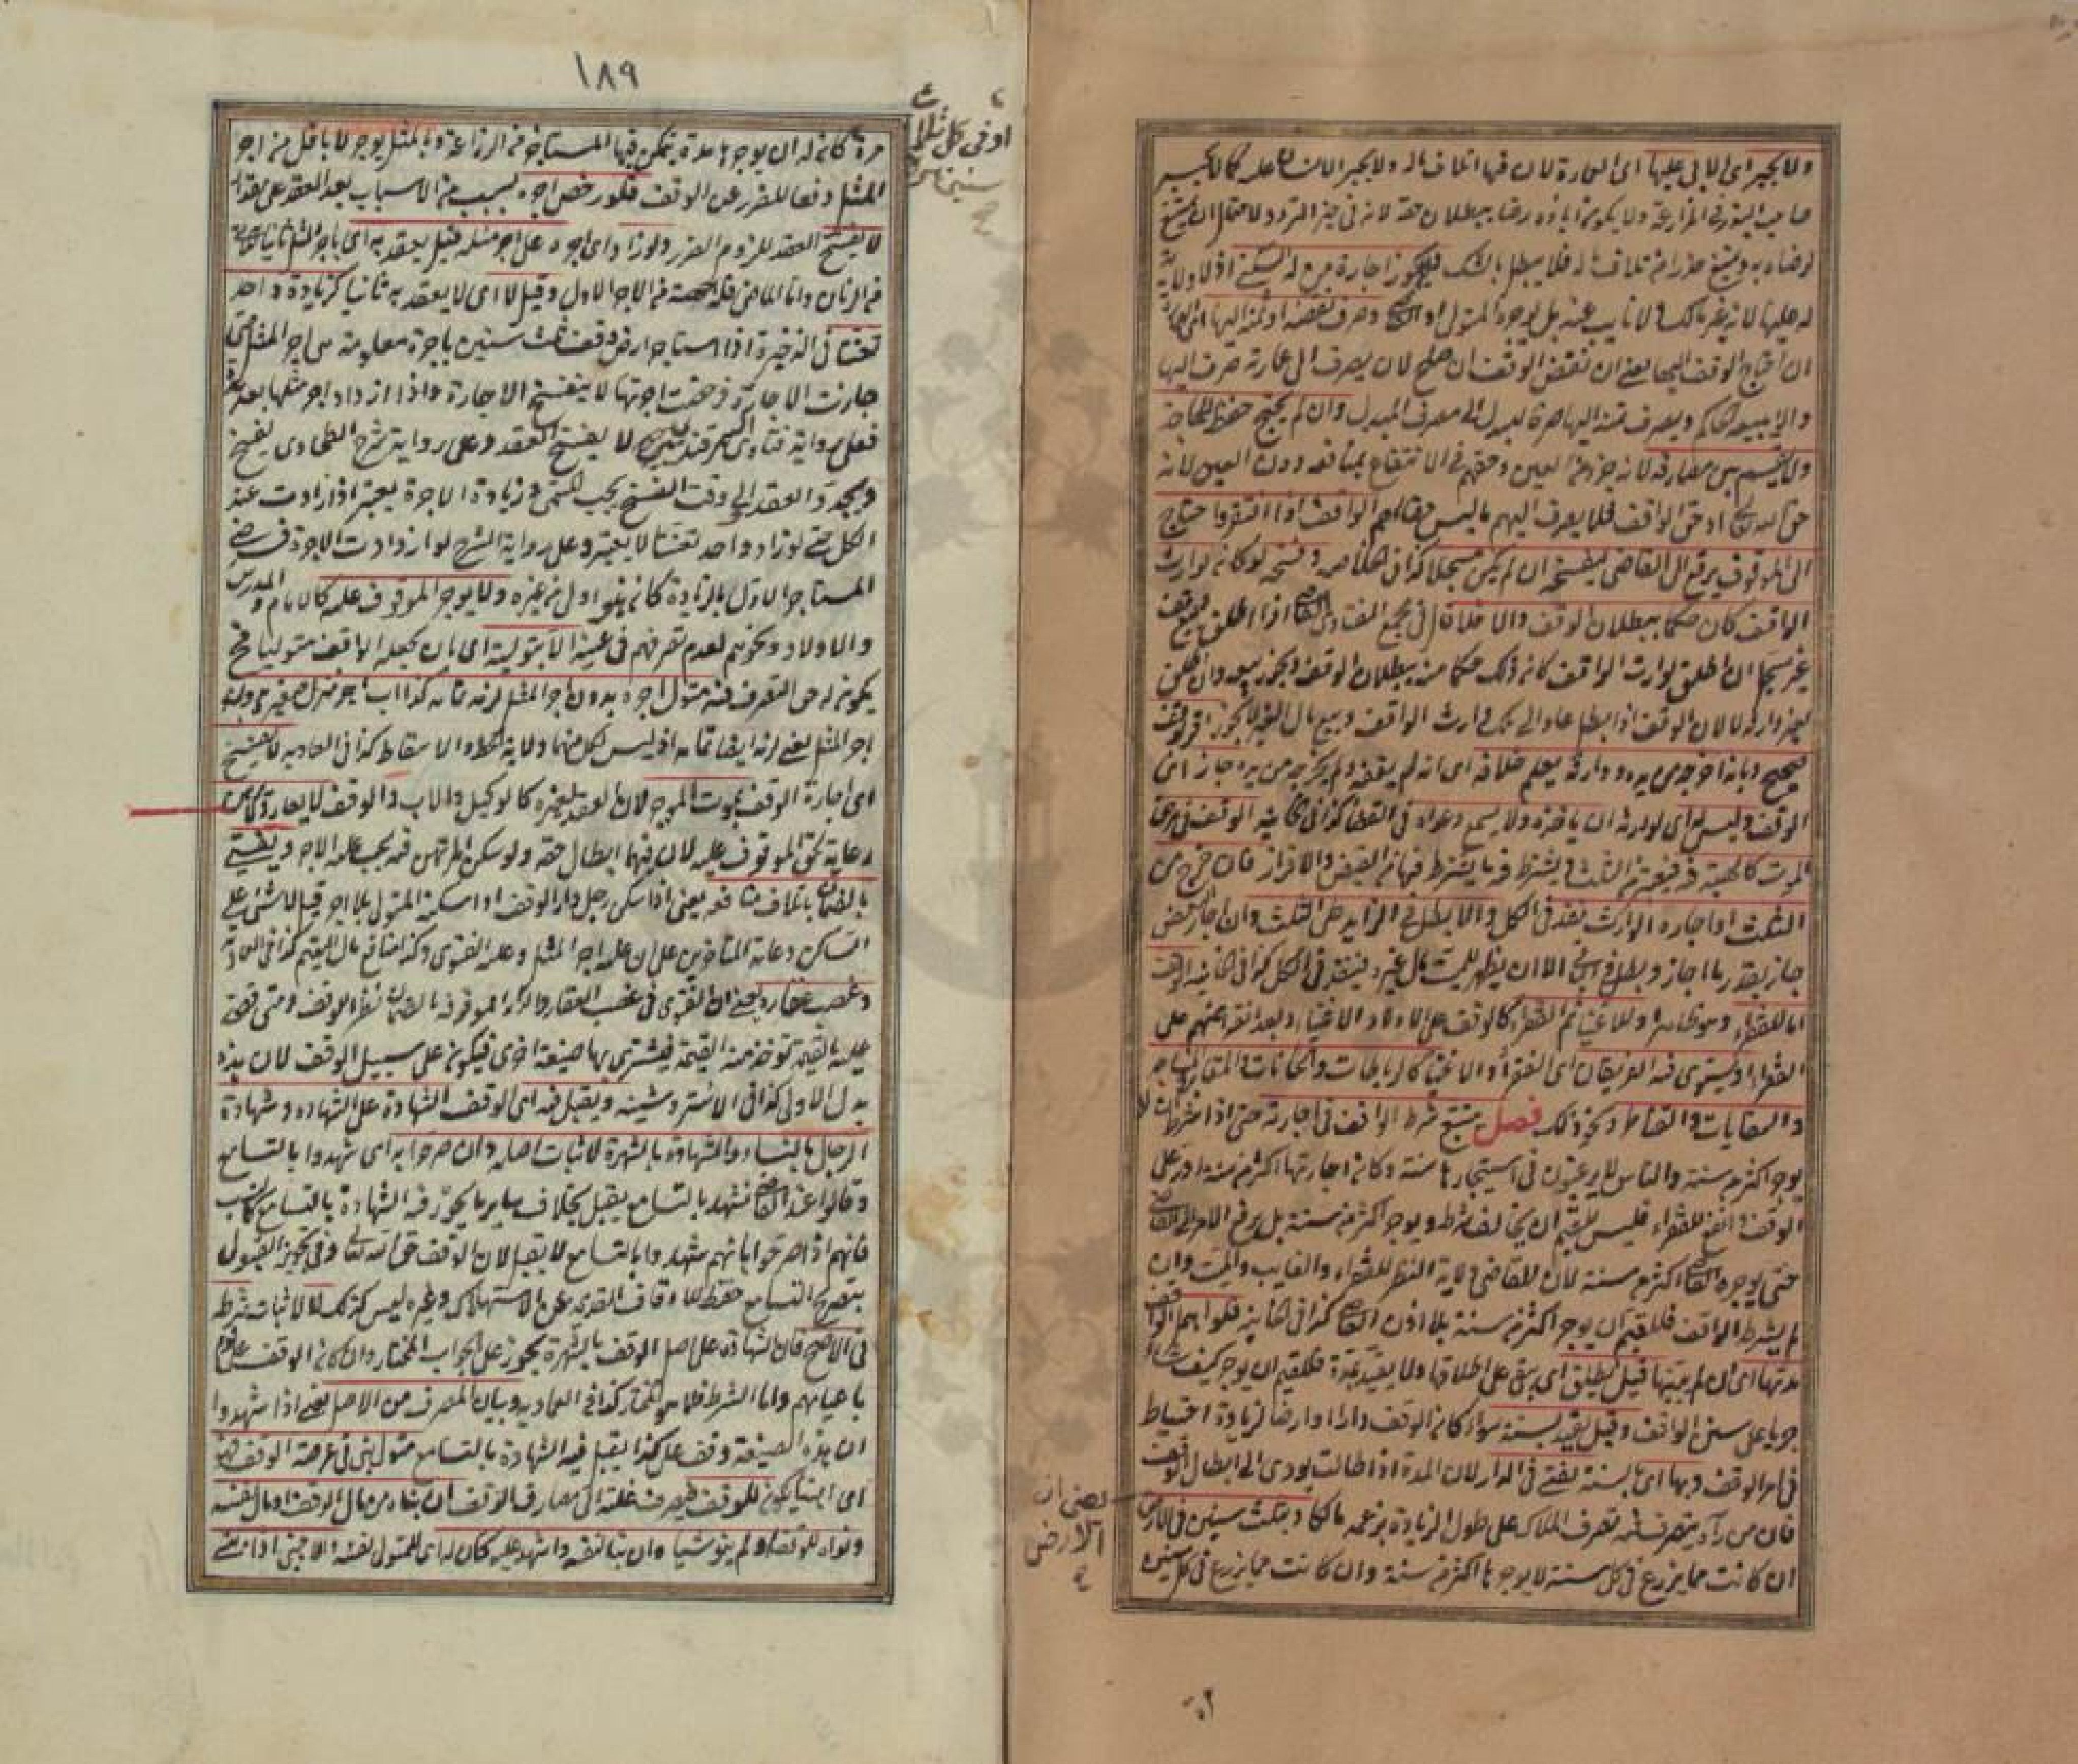 ولا يجبر اى الآبى عليها اى العمارة لان فيها اتلاف ماله ولا يجبر الانسان عليه كما لا يجبر
صاحب البذر فى المزارعة ولا يكون اباؤه رضاء ببطلان حقه لانه فى حيز التردد لاحتمال ان يمتنع
لرضاه به ويمتنع حذرا من تلاف ماله فلا يبطل بالشك فلا يجوز اجارة من له السكنى اذ لا ولاية
له عليها لانه غير مالك ولا نايب عنه بل يوجره المتولى او القاضى وصرف نقضه او ثمنه اليها اى العمارة
ان احتاج الوقف اليها يعنى ان نقض الوقف ان صلح لان يصرف الى عمارته صرف اليها
والا يبيعه الحاكم ويصرف ثمنه اليها صرفا للبدل الى مصرف المبدل وان لم يحتج حفظ للحاجة
ولا يقسم بين مصارفه لانه جزء من العين وحقهم فى الانتفاع بمنافعه دون العين لانه
حق الله تعالى او حق الواقف فلا يصرف اليهم ما ليس حقا لهم الواقف اذا افتقر واحتاج
الى الموقوف يرفع الى القاضى ليفسخه ان لم يكن مسجلا كذا فى الخلاصة وفسخه لو كان لوارث
الواقف كان حكما ببطلان الوقف والا فلا قال فى مجمع الفتاوى القاضى اذا اطلق بيع وقف
غير مسجل ان اطلق لوارث الواقف كان ذلك حكما منه ببطلان الوقف ويجوز بيعه وان اطلق
لغير وارثه لا لان الوقف اذا بطل عاد الى ملك وارث الواقف وبيع مال الغير لا يجوز اقر بوقف
صحيح وبانه اخرجه من يده ووارثه يعلم خلافه اى انه لم يقفه ولم يخرجه من يده جاز اى
الوقف وليس له اى لوارثه ان ياخذه ولا يسمع دعواه فى القضاء كذا فى الخانية الوقف فى مرض
الموت كالهبة فيه فيعتبر من الثلث ويشترط فيه ما يشترط فيها من القبض والافراز فان خرج من
الثلث او اجازه الوارث نفذ فى الكل والا بطل فى الزايد على الثلث وان اجاز البعض
جاز بقدر ما اجاز وبطل فى الباقى الا ان يظهر للميت مال غيره فينفذ فى الكل كذا فى الخانية الوقف
اما للفقراء وهو ظاهر او للاغنياء ثم الفقراء كالوقف على الاولاد الاغنياء وبعد انقراضهم على
الفقراء او يستوى فيه الفريقان اى الفقراء والاغنياء كالرباطات والخانات والمقابر والمساجد
والسقايات والقناطر ونحو ذلك فصل يتبع شرط الواقف فى اجارته حتى اذا شرط ان لا
يوجر اكثر من سنة والناس لا يرغبون فى استيجارها سنة وكان اجارتها اكثر من سنة ادر على
الوقف وانفع للفقراء فليس للقيم ان يخالف شرطه ويوجر اكثر من سنة بل يرفع الامر الى القاضى
حتى يوجره القاضى اكثر من سنة لان للقاضى ولاية النظر للفقراء والغايب والميت وان
لم يشترط الواقف فللقيم ان يوجر اكثر من سنة بلا اذن القاضى كذا فى الخانية فلو اهمل الواقف
مدتها اى ان لم يبينها قيل تطلق اى يبقى على اطلاقها ولا يقيد بمدة فللقيم ان يوجر كيف شاء
جريا على سنن الواقف وقيل يقيد بسنة سواء كان الوقف دارا او ارضا لزيادة احتياط
فى امر الوقف وبها اى بسنة يفتى فى الدار لان المدة اذا طالت يودى الى ابطال الوقف
فان من رآه يتصرف فيه تصرف الملاك على طول الزيادة يزعمه مالكا وبثلث سنين فى الارض
ان كانت مما يزرع فى كل سنة لا يوجرها اكثر من سنة وان كانت مما يزرع فى كل سنتين
يعنى ان
الارض
١٨٩
او فى كل ثلاث
سنين
مرة كان له ان يوجرها مدة يتمكن فيها المستاجر من الزراعة وبالمثل يوجر لا باقل من اجر
المثل دفعا للضرر عن الوقف فلو رخص اجره بسبب من الاسباب بعد العقد على مقدار
لا يفسخ العقد للزوم الضرر ولو زاد اى اجره على اجر مثله قيل يعقد به اى باجر المثل ثانيا
من الزمان واما الماضى فله حصة من الاجر الاول وقيل لا اى لا يعقد به ثانيا كزيادة واحد
تعنتا فى الذخيرة اذا استاجر ارض وقف ثلث سنين باجرة معلومة هى اجر المثل حتى
جازت الاجارة فرخصت اجرتها لا ينفسخ الاجارة واذا ازداد اجر مثلها بعد مدة
فعلى رواية فتاوى سمرقند لا يفسخ العقد وعلى رواية شرح الطحاوى يفسخ
ويجدد العقد والى وقت الفسخ يجب المسمى وزيادة الاجرة يعتبر اذا زادت عند
الكل حتى لو زاد واحد تعنتا لا يعتبر وعلى رواية الشرح لو ازدادت الاجرة فرضى
المستاجر الاول بالزيادة كان هو اولى من غيره ولا يوجر الموقوف عليه كالامام والمدرس
والاولاد ونحوهم لعدم تصرفهم فى عينه الا بتولية اى بان يجعله الواقف متوليا فح
يكون له حق التصرف فيه متولى اجره بدون اجر المثل لزمه تمامه كذا اب اجر منزل صغيره بدون
اجر المثل يعنى لزمه ايضا تمامه اذ ليس لكل منهما ولاية الحط والاسقاط كذا فى العمادية لا يفسخ
اى اجارة الوقف بموت الموجر لان العقد لغيره كالوكيل والاب والوقف لا يعار ولا يرهن
رعاية لحق الموقوف عليه لان فيهما ابطال حقه ولو سكن المرتهن فيه يجب عليه الاجر ويفتى
بالضمان باتلاف منافعه يعنى اذا سكن رجل دار الوقف او اسكنه المتولى بلا اجر قيل لا شئ على
الساكن وعامة المتاخرين على ان عليه اجر المثل وعليه الفتوى وكذا منافع مال اليتيم كذا فى العمادية
وغصب عقاره يعنى ان الفتوى فى غصب العقار والدار الموقوفة بالضمان نظرا للوقف ومتى قضى
عليه بالقيمة توخذ منه القيمة فيشترى بها ضيعة اخرى فيكون على سبيل الوقف لان هذه
بدل الاولى كذا فى الاستروشينه ويقبل فيه اى الوقف الشهادة على الشهادة وشهادة
الرجال بالنساء والشهادة بالشهرة لاثبات اصله وان صرحوا به اى شهدوا بالتسامع
وقالوا عند القاضى نشهد بالتسامع يقبل بخلاف ساير ما يجوز فيه الشهادة بالتسامع كالنسب
فانهم اذا صرحوا بانهم شهدوا بالتسامع لا يقبل لان الوقف حق الله تعالى وفى تجويز القبول
بتصريح التسامع حفظ للاوقاف القديمة عن الاستهلاك وغيره ليس كذلك لا لاثبات شرطه
فى الاصح فان الشهادة على اصل الوقف بالشهرة يجوز على الجواب المختار وان كان الوقف على قوم
باعيانهم واما الشرط فلا هو المختار كذا فى العمادية وبيان المصرف من الاصل يعنى اذا شهدوا
ان هذه الضيعة وقف على كذا يقبل فيه الشهادة بالتسامع متولى بنى فى عرصة الوقف فهو
اى البناء يكون للوقف فيصرف غلته الى مصارف الوقف ان بناه من مال الوقف او مال نفسه
ونواه للوقف او لم ينو شيئا وان بنا لنفسه واشهد عليه كان له اى للمتولى نفسه الاجنبى اذا بنى